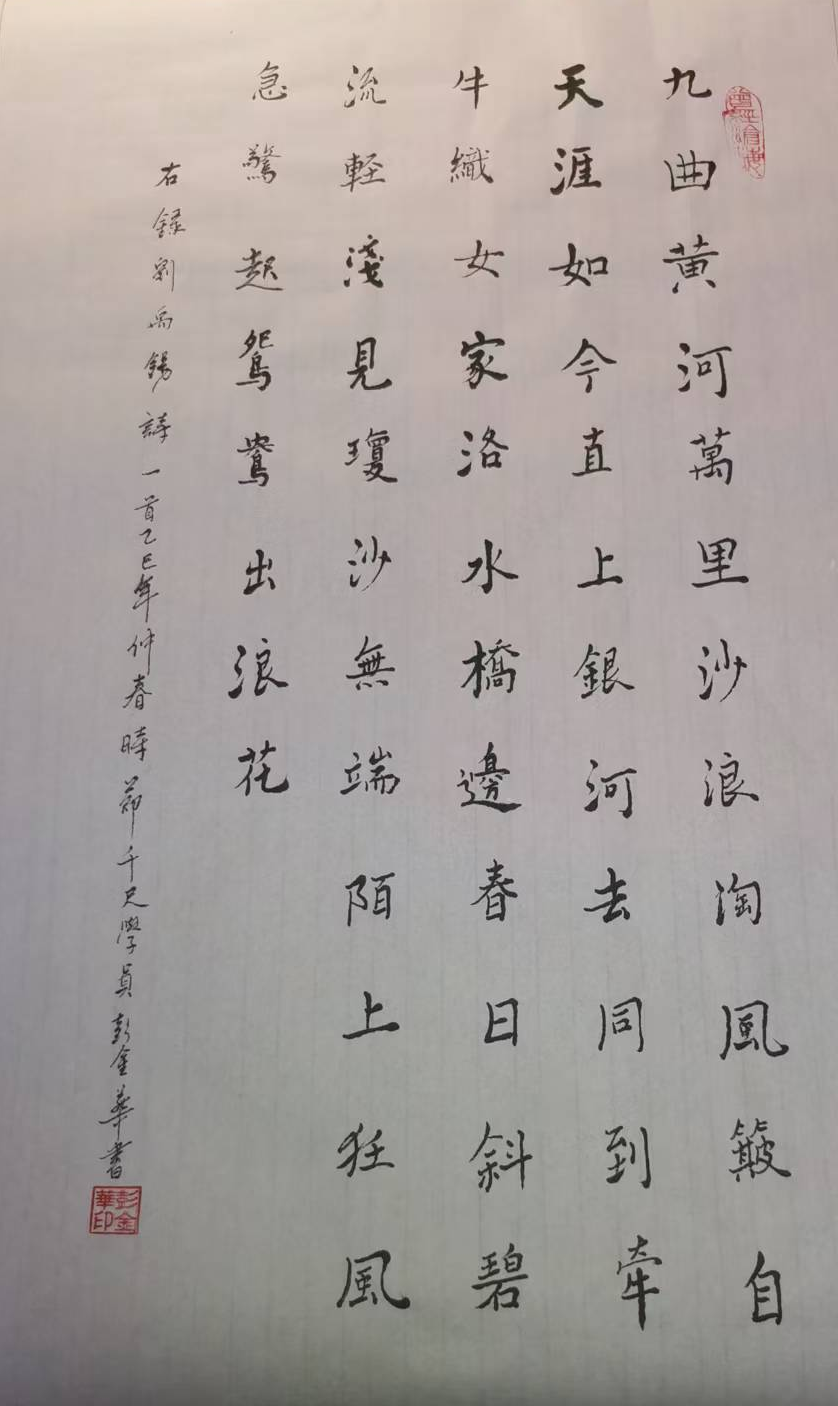 九曲黄河萬里沙浪淘風簸自
天涯如今直上銀河去同到牽
牛織女家洛水橋邊春日斜碧
流軽淺見瓊沙無端陌上狂風
急驚起鴛鴦出浪花
右録劉禹錫詩一首乙巳年仲春時節千尺學員彭金華書
彭金華印